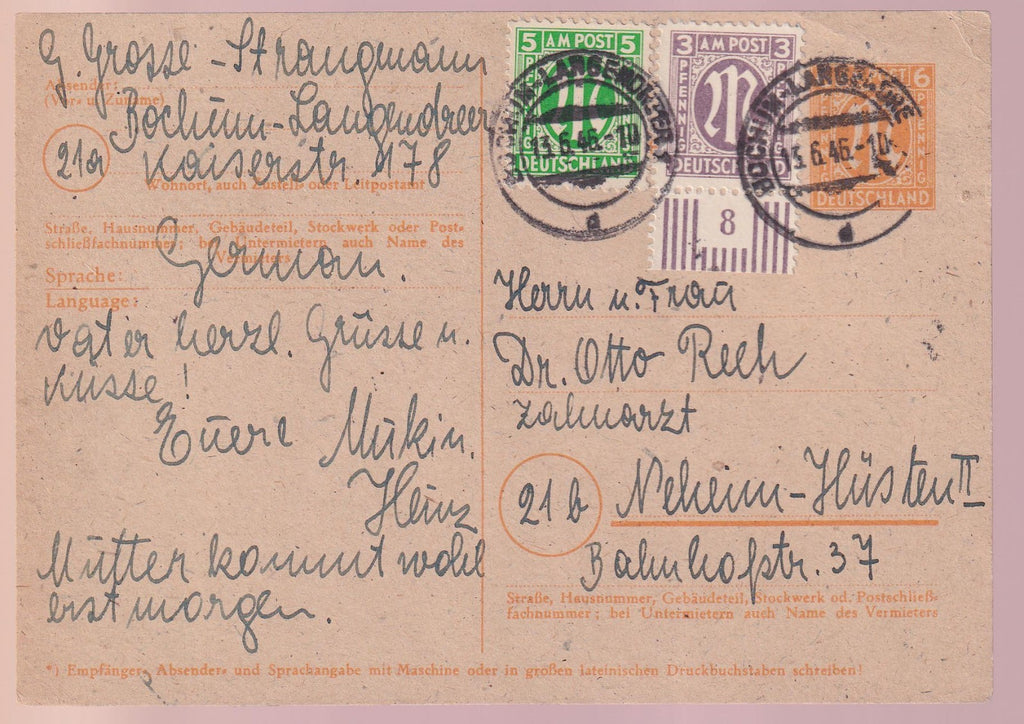 G. Grosse - Strangmann
Absender:
(Vor- u. Zuname)
Bochum-Langendreer
21a Kaiserstr. 178
Wohnort, auch Zustell- oder Leitpostamt
Straße, Hausnummer, Gebäudeteil, Stockwerk oder Post-
schließfachnummer; bei Untermietern auch Name des
Vermieters
Sprache:
German.
Language:
Vater herzl. Grüsse u.
Küsse!
Euere Mukin.
Heinz
Mutter kommt wohl
erst morgen.
5 AM POST 5
PFENNIG
DEUTSCHLAND
3 AM POST 3
PFENNIG
M
DEUTSCHLAND
8
POST 6
PFENNIG
DEUTSCHLAND
BOCHUM-LANGENDREER
13.6.46.-10
d
BOCHUM-LANGENDREER
13.6.46.-10
d
Herrn u. Frau
Dr. Otto Reeh
Zahnarzt
21b Neheim-Hüsten II
Bahnhofstr. 37
Straße, Hausnummer, Gebäudeteil, Stockwerk od. Postschließ-
fachnummer; bei Untermietern auch Name des Vermieters
*) Empfänger-, Absender- und Sprachangabe mit Maschine oder in großen lateinischen Druckbuchstaben schreiben!